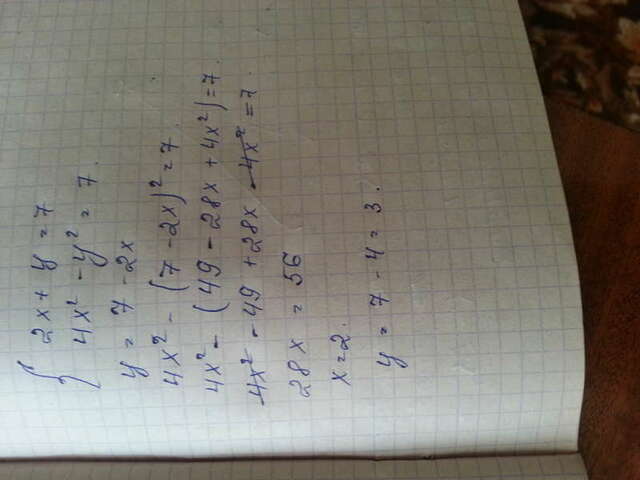 { 2x + y = 7
4x² - y² = 7.
y = 7 - 2x
4x² - (7 - 2x)² = 7.
4x² - (49 - 28x + 4x²) = 7.
4x² - 49 + 28x - 4x² = 7.
28x = 56
x = 2.
y = 7 - 4 = 3.